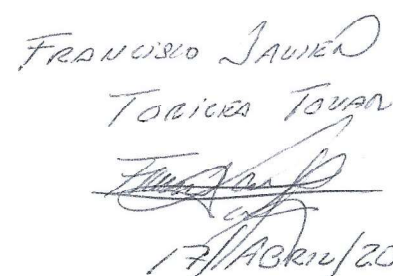 FRANCISCO JAVIER
TOVAR
17/ABRIL/20